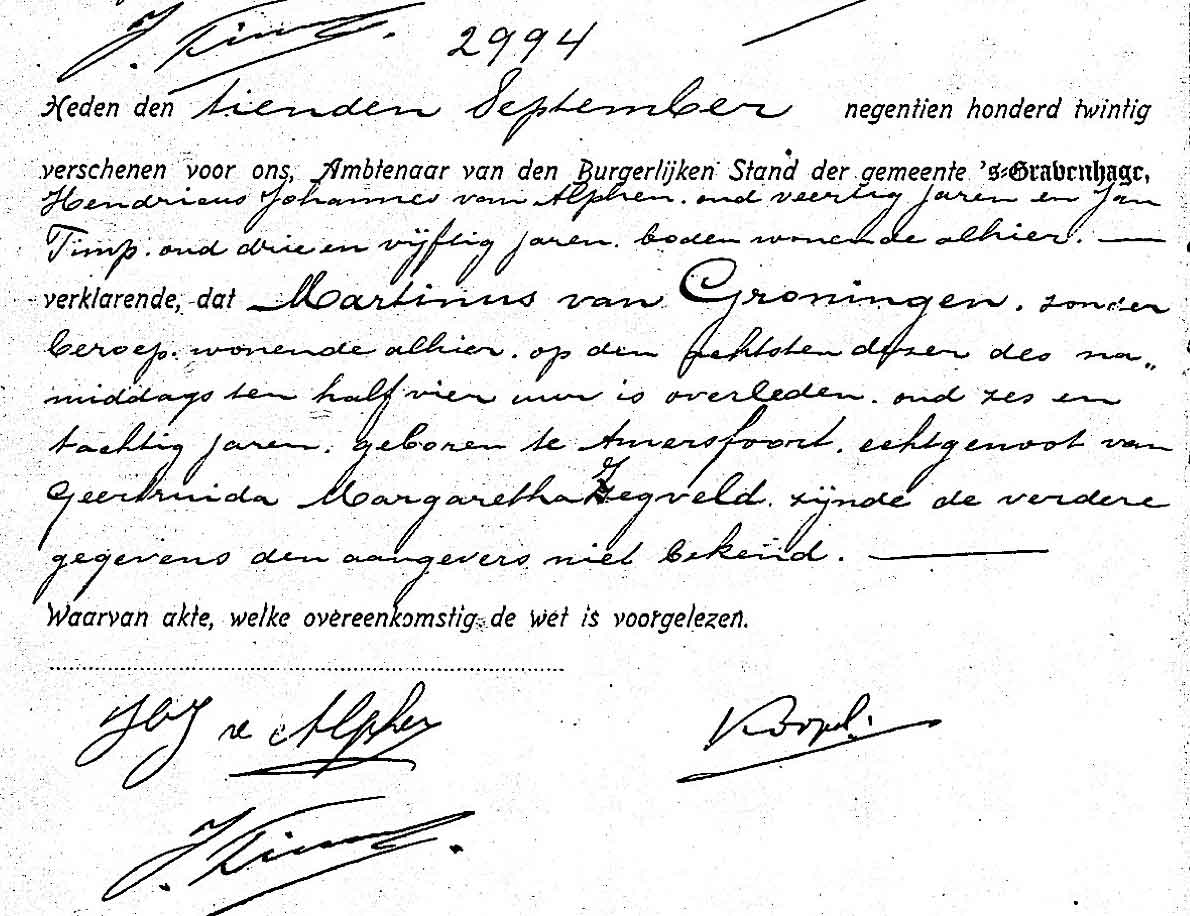 J. Timp.
2994
Heden den tienden September negentien honderd twintig
verschenen voor ons, Ambtenaar van den Burgerlijken Stand der gemeente 's-Gravenhage,
Hendricus Johannes van Alphen. oud veertig jaren en Jan
Timp. oud drie en vijftig jaren. boden wonende alhier. —
verklarende, dat Martinus van Groningen. zonder
beroep. wonende alhier. op den achtsten dezer des na„
middags ten half vier uur is overleden. oud zes en
tachtig jaren. geboren te Amersfoort. echtgenoot van
Geertruida Margaretha Zegveld. zijnde de verdere
gegevens den aangevers niet bekend. —
Waarvan akte, welke overeenkomstig de wet is voorgelezen.
HJ v Alphen
J. Timp.